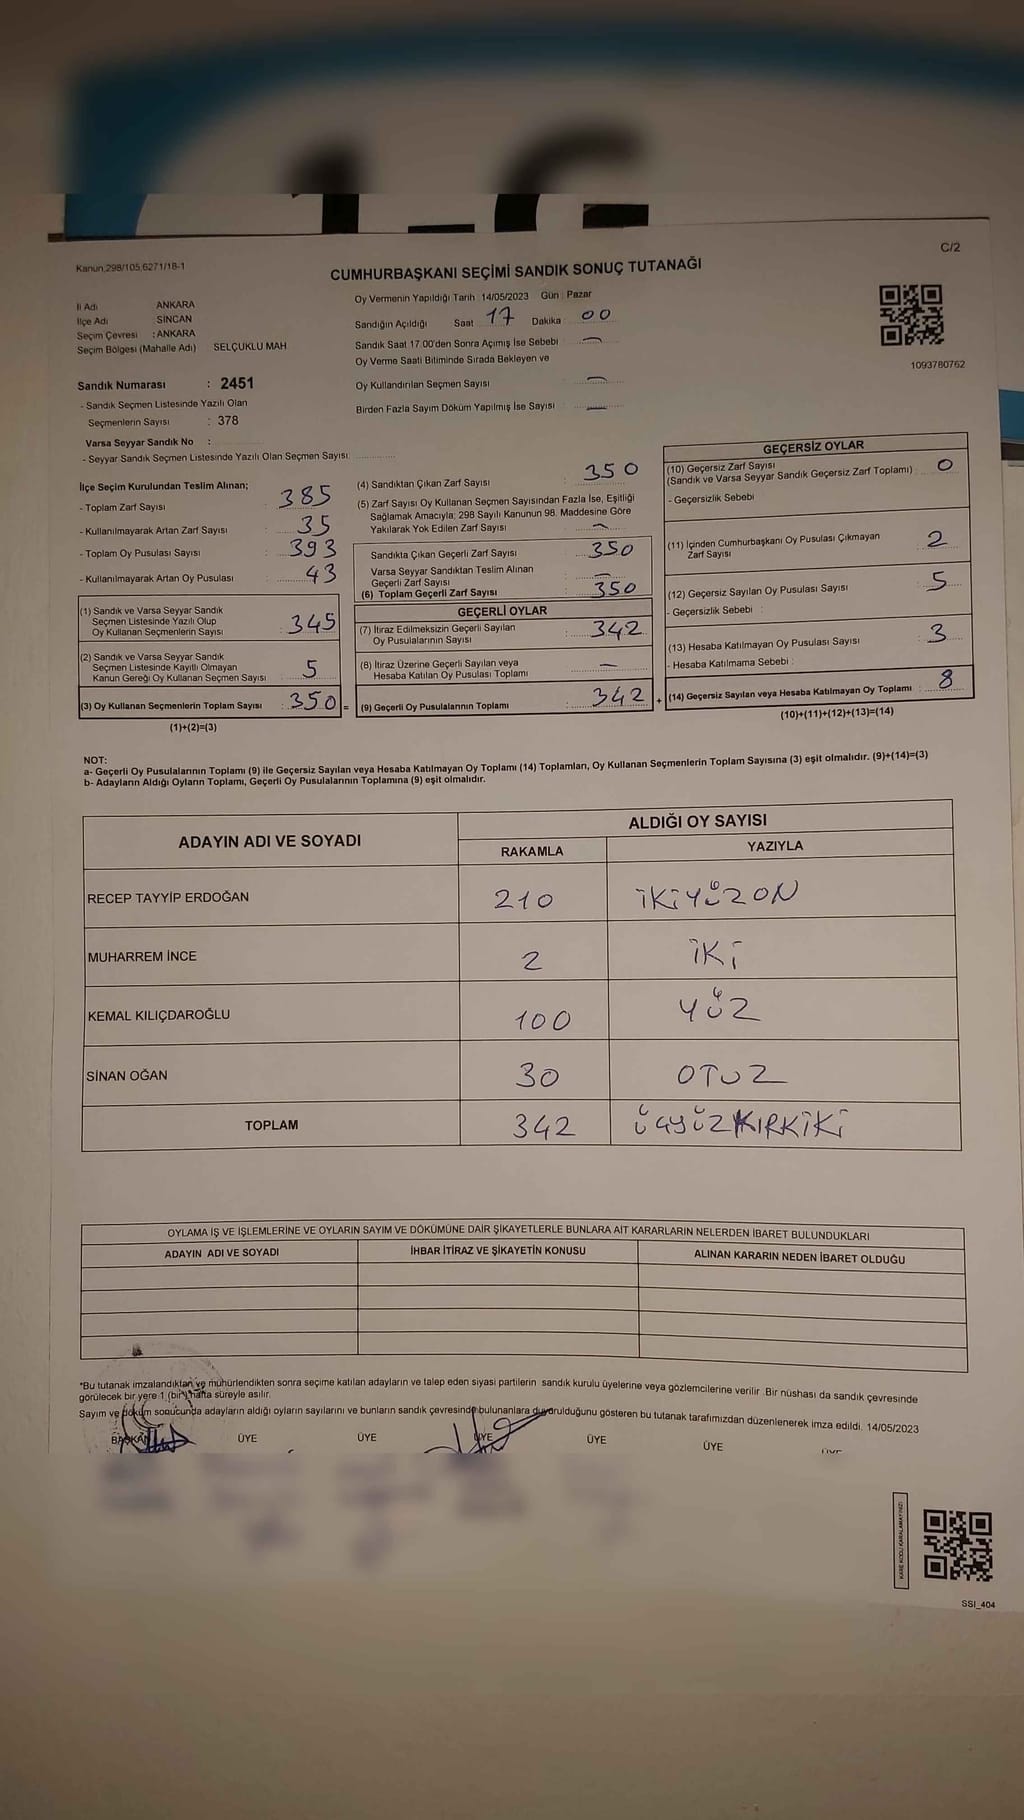 Kanun,298/105,6271/18-1
C/2
CUMHURBAŞKANI SEÇİMİ SANDIK SONUÇ TUTANAĞI
İl Adı ANKARA
İlçe Adı SİNCAN
Seçim Çevresi : ANKARA
Seçim Bölgesi (Mahalle Adı) SELÇUKLU MAH
Sandık Numarası : 2451
- Sandık Seçmen Listesinde Yazılı Olan
Seçmenlerin Sayısı : 378
Varsa Seyyar Sandık No :
- Seyyar Sandık Seçmen Listesinde Yazılı Olan Seçmen Sayısı:
Oy Vermenin Yapıldığı Tarih 14/05/2023 Gün : Pazar
Sandığın Açıldığı Saat 17 Dakika : 00
Sandık Saat 17.00'den Sonra Açımış İse Sebebi : —
Oy Verme Saati Bitiminde Sırada Bekleyen ve
Oy Kullandırılan Seçmen Sayısı —
Birden Fazla Sayım Döküm Yapılmış İse Sayısı —
1093780762
İlçe Seçim Kurulundan Teslim Alınan;
- Toplam Zarf Sayısı : 385
- Kullanılmayarak Artan Zarf Sayısı : 35
- Toplam Oy Pusulası Sayısı : 393
- Kullanılmayarak Artan Oy Pusulası : 43
(1) Sandık ve Varsa Seyyar Sandık
Seçmen Listesinde Yazılı Olup
Oy Kullanan Seçmenlerin Sayısı : 345
(2) Sandık ve Varsa Seyyar Sandık
Seçmen Listesinde Kayıtlı Olmayan
Kanun Gereği Oy Kullanan Seçmen Sayısı : 5
(3) Oy Kullanan Seçmenlerin Toplam Sayısı : 350 =
(1)+(2)=(3)
(4) Sandıktan Çıkan Zarf Sayısı : 350
(5) Zarf Sayısı Oy Kullanan Seçmen Sayısından Fazla İse, Eşitliği
Sağlamak Amacıyla; 298 Sayılı Kanunun 98. Maddesine Göre
Yakılarak Yok Edilen Zarf Sayısı : —
Sandıkta Çıkan Geçerli Zarf Sayısı : 350
Varsa Seyyar Sandıktan Teslim Alınan
Geçerli Zarf Sayısı : —
(6) Toplam Geçerli Zarf Sayısı : 350
GEÇERLİ OYLAR
(7) İtiraz Edilmeksizin Geçerli Sayılan
Oy Pusulalarının Sayısı : 342
(8) İtiraz Üzerine Geçerli Sayılan veya
Hesaba Katılan Oy Pusulası Toplamı : —
(9) Geçerli Oy Pusulalarının Toplamı : 342 +
GEÇERSİZ OYLAR
(10) Geçersiz Zarf Sayısı
(Sandık ve Varsa Seyyar Sandık Geçersiz Zarf Toplamı) : 0
- Geçersizlik Sebebi
(11) İçinden Cumhurbaşkanı Oy Pusulası Çıkmayan
Zarf Sayısı : 2
(12) Geçersiz Sayılan Oy Pusulası Sayısı : 5
- Geçersizlik Sebebi :
(13) Hesaba Katılmayan Oy Pusulası Sayısı : 3
- Hesaba Katılmama Sebebi :
(14) Geçersiz Sayılan veya Hesaba Katılmayan Oy Toplamı : 8
(10)+(11)+(12)+(13)=(14)
NOT:
a- Geçerli Oy Pusulalarının Toplamı (9) ile Geçersiz Sayılan veya Hesaba Katılmayan Oy Toplamı (14) Toplamları, Oy Kullanan Seçmenlerin Toplam Sayısına (3) eşit olmalıdır. (9)+(14)=(3)
b- Adayların Aldığı Oyların Toplamı, Geçerli Oy Pusulalarının Toplamına (9) eşit olmalıdır.
ADAYIN ADI VE SOYADI
ALDIĞI OY SAYISI
RAKAMLA YAZIYLA
RECEP TAYYİP ERDOĞAN 210 İKİYÜZON
MUHARREM İNCE 2 İKİ
KEMAL KILIÇDAROĞLU 100 YÜZ
SİNAN OĞAN 30 OTUZ
TOPLAM 342 ÜÇYÜZKIRKİKİ
OYLAMA İŞ VE İŞLEMLERİNE VE OYLARIN SAYIM VE DÖKÜMÜNE DAİR ŞİKAYETLERLE BUNLARA AİT KARARLARIN NELERDEN İBARET BULUNDUKLARI
ADAYIN ADI VE SOYADI İHBAR İTİRAZ VE ŞİKAYETİN KONUSU ALINAN KARARIN NEDEN İBARET OLDUĞU
*Bu tutanak imzalandıktan ve mühürlendikten sonra seçime katılan adayların ve talep eden siyasi partilerin sandık kurulu üyelerine veya gözlemcilerine verilir. Bir nüshası da sandık çevresinde
görülecek bir yere 1 (bir) hafta süreyle asılır.
Sayım ve döküm sonucunda adayların aldığı oyların sayılarını ve bunların sandık çevresinde bulunanlara duyurulduğunu gösteren bu tutanak tarafımızdan düzenlenerek imza edildi. 14/05/2023
BAŞKAN ÜYE ÜYE ÜYE ÜYE ÜYE ÜYE
KARE KODU KARALAMAYINIZ!
SSİ_404